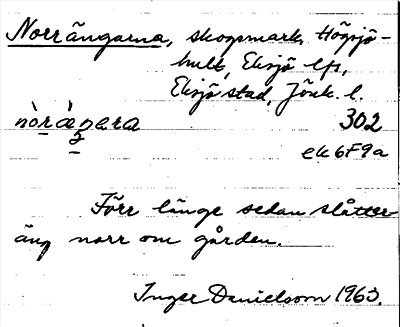 Norrängarna, skogsmark, Högsjö-
hult, Eksjö lfs,
Eksjö stad, Jönk. l.
302
ek 6F9a
Förr länge sedan slåtter-
äng norr om gården.
Inger Danielsson 1963.